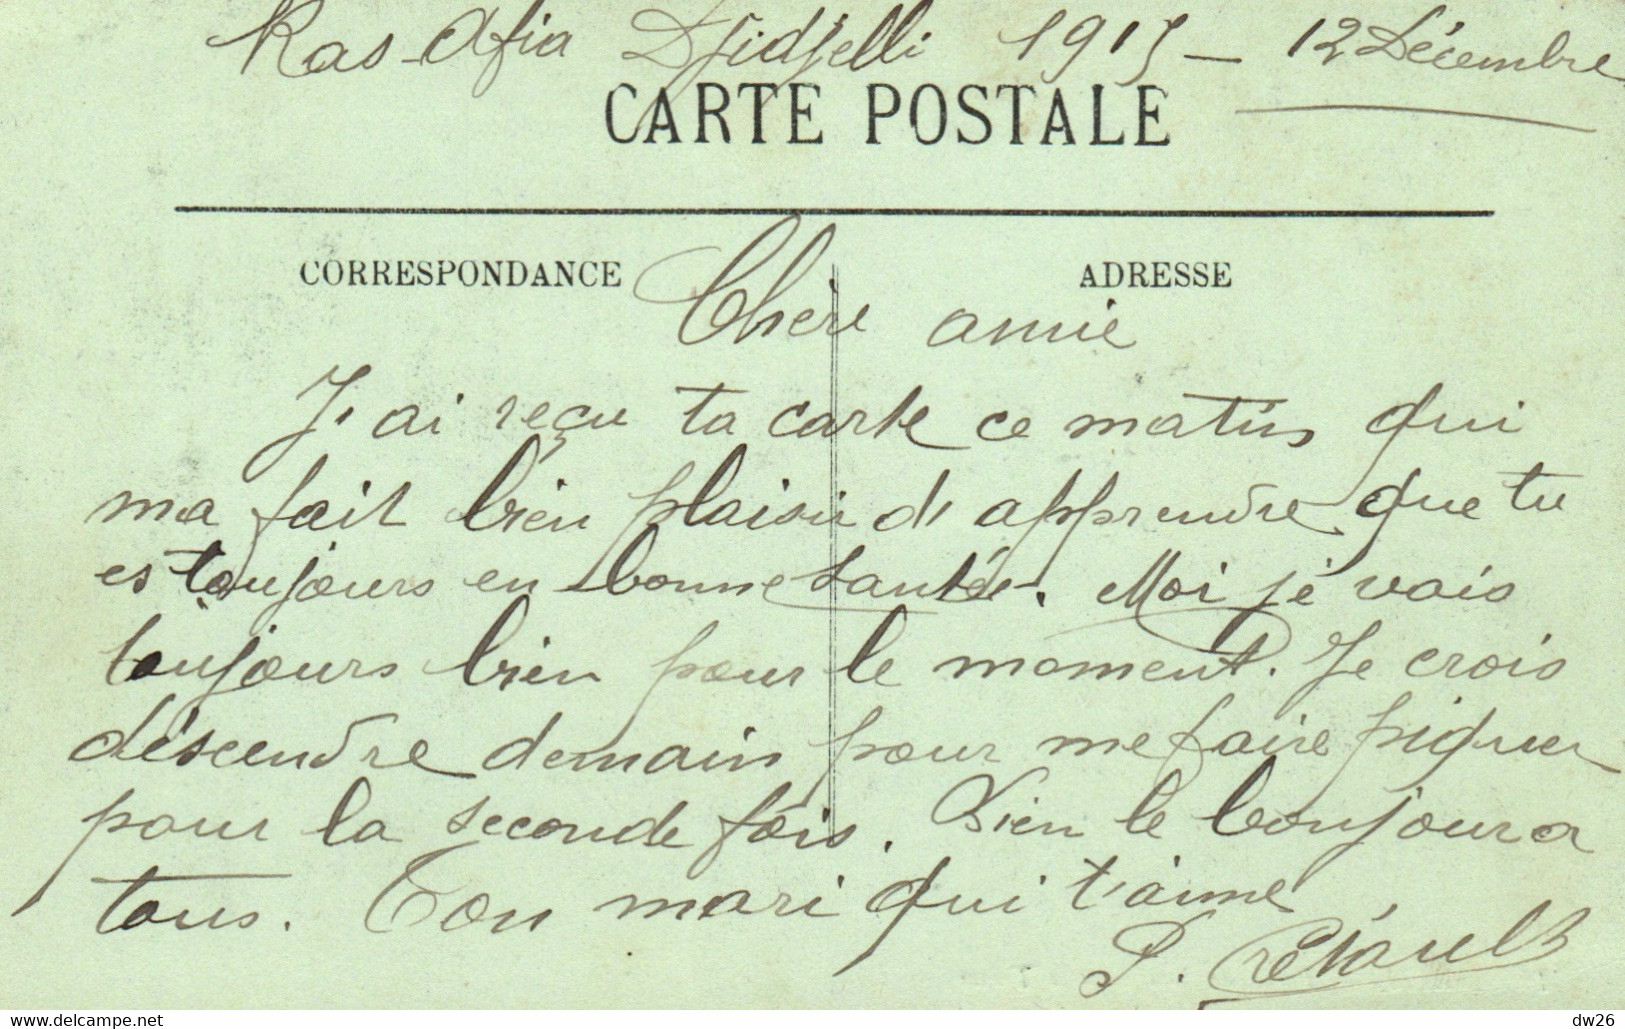 Ras-Afia Djidjelli 1915 - 12 Décembre
CARTE POSTALE
CORRESPONDANCE
ADRESSE
Chère amie
J'ai reçu ta carte ce matin qui
ma fait bien plaisir d'apprendre que tu
es toujours en bonne santée. Moi je vais
toujours bien pour le moment. Je crois
déscendre demain pour me faire piquer
pour la seconde fois. Bien le bonjour a
tous. Ton mari qui t'aime
P.
delcampe.net
dw26